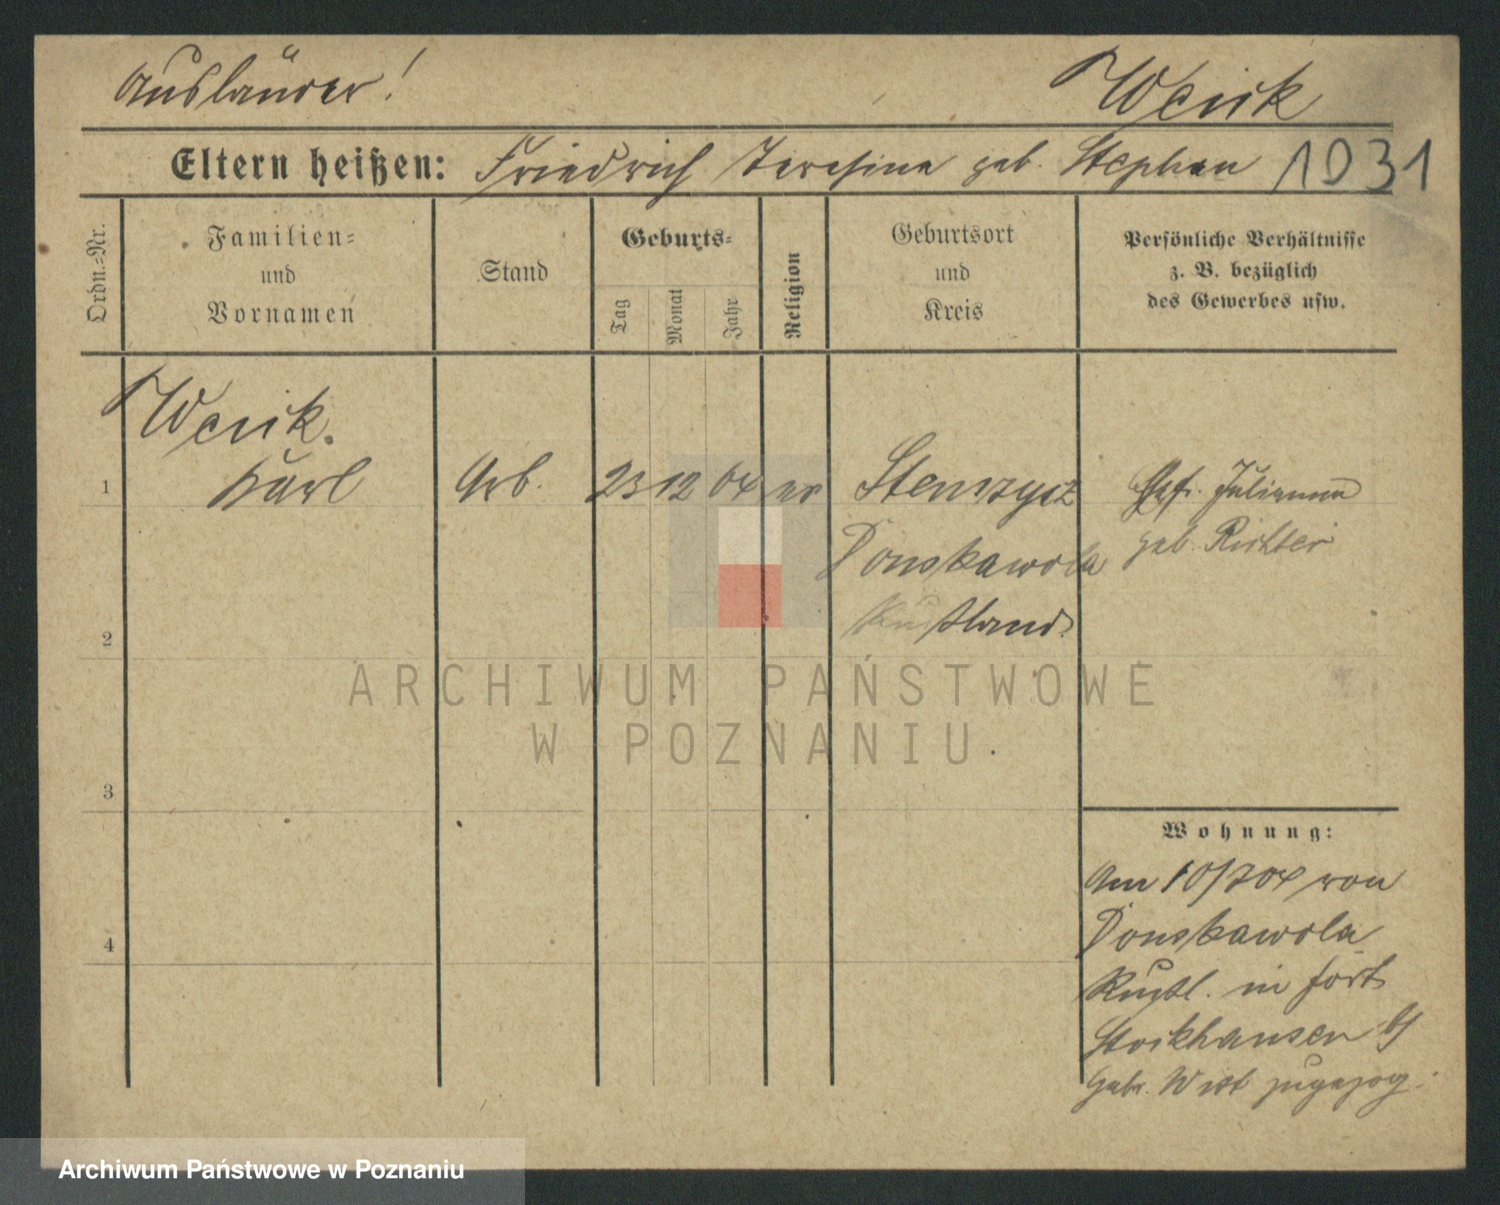 Ausländer! Wenk
Eltern heißen: Friedrich Teresine geb. Stephan 1031
Ordn.-Nr.
Familien-
und
Vornamen
Stand
Geburts-
Tag
Monat
Jahr
Religion
Geburtsort
und
Kreis
Persönliche Verhältnisse
z. B. bezüglich
des Gewerbes usw.
Wenk.
1 Karl Arb. 23 12 04 ev Stenszycz Ehefr. Julianna
Donskawola geb. Richter
2 Rußland.
ARCHIWUM PAŃSTWOWE
W POZNANIU
3
Wohnung:
Am von
Donskawola
4 Rußl. in Fort
Stockhausen b/
Gebr. zugezog.
Archiwum Państwowe w Poznaniu